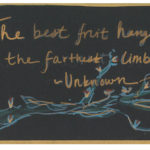 The best fruit hang
the farthest climb
~Unknown~